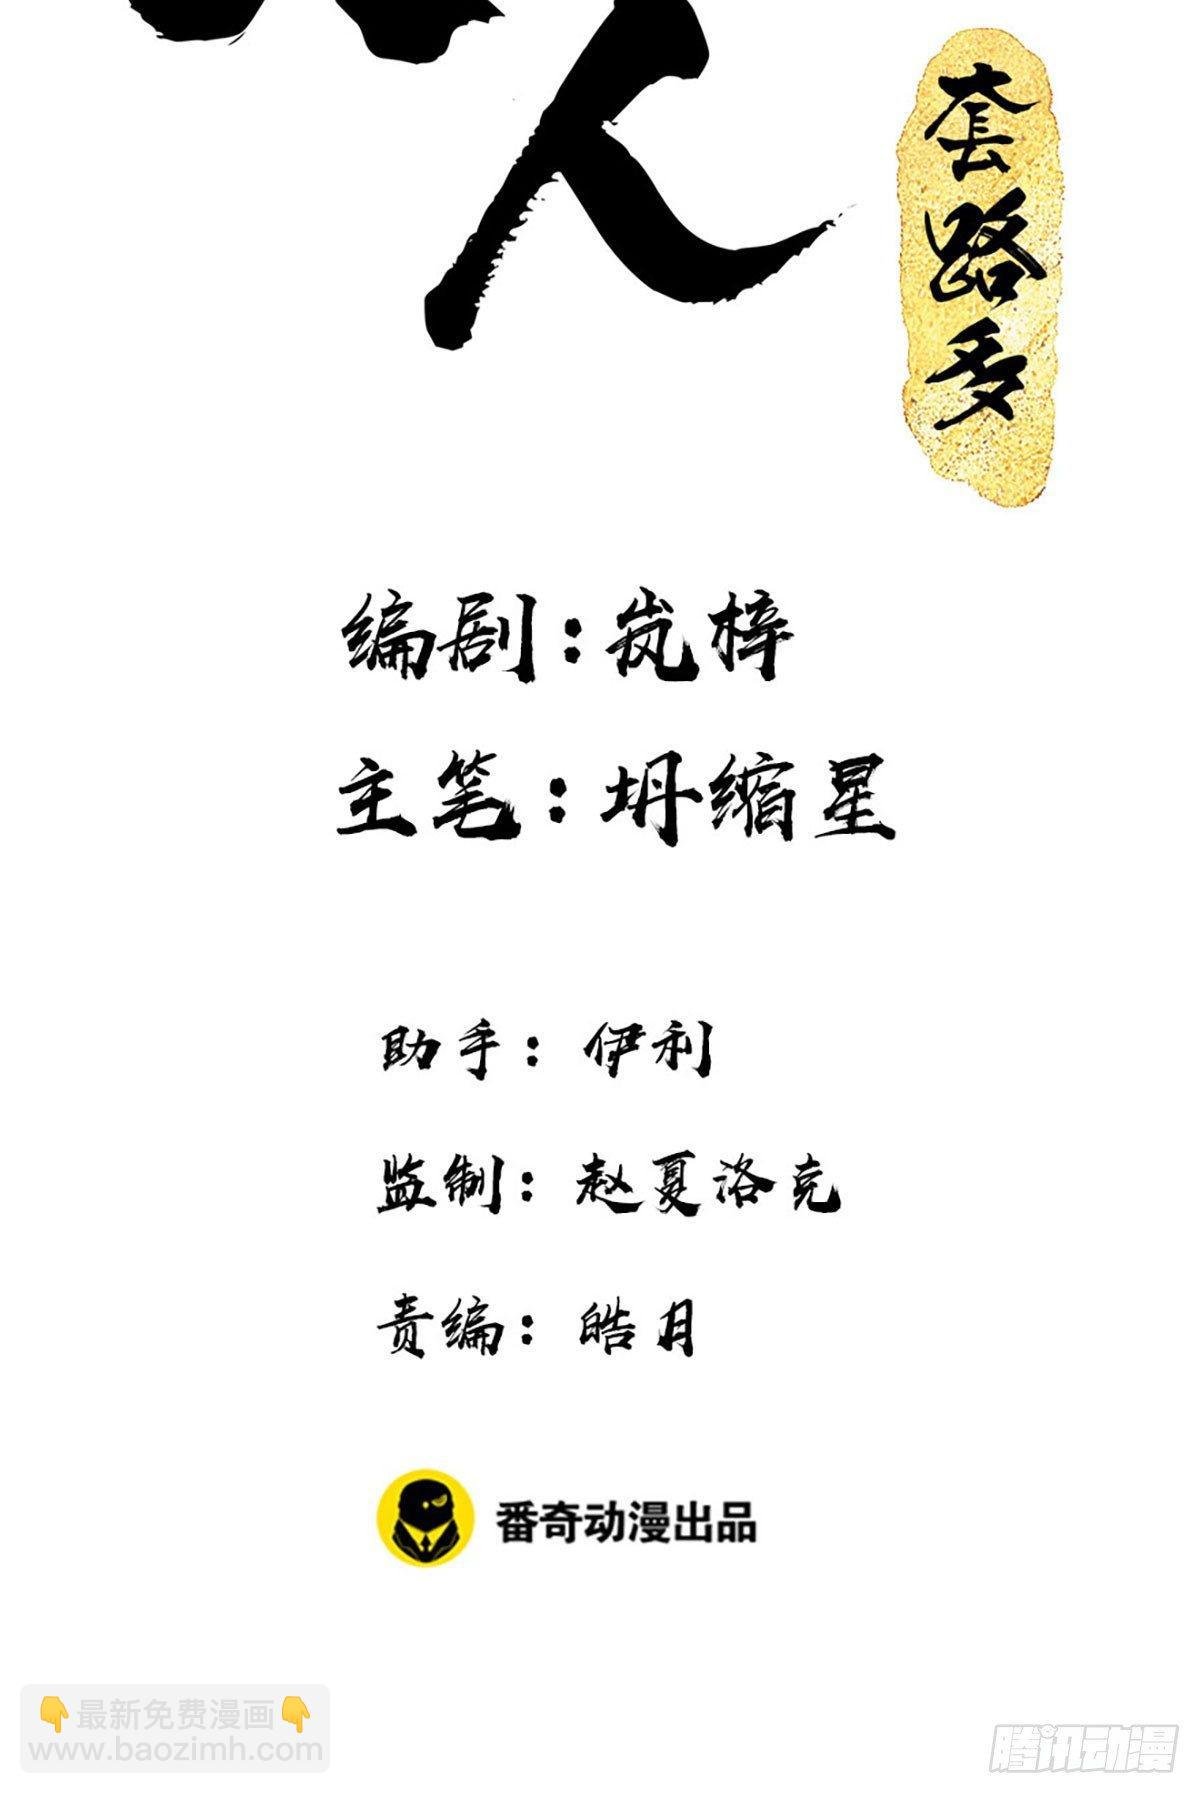 人
套路多
编剧：岚梓
主笔：坍缩星
助手：伊利
监制：赵夏洛克
责编：皓月
番奇动漫出品
👇最新免费漫画👇
www.baozimh.com
腾讯动漫